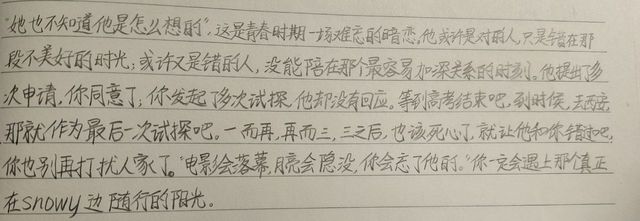 “她也不知道他是怎么想的”，这是青春时期一场难忘的暗恋，他或许是对的人，只是错在那
段不美好的时光；或许又是错的人，没能陪在那个最容易加深关系的时刻。他提出了多
次申请，你同意了，你发起了多次试探，他却没有回应。等到高考结束吧，到时候，去西安，
那就作为最后一次试探吧。一而再，再而三，三之后，也该死心了，就让他和你错过吧，
你也别再打扰人家了。“电影会落幕，月亮会隐没，你会忘了他的。”你一定会遇上那个真正
在snowy边随行的阳光。